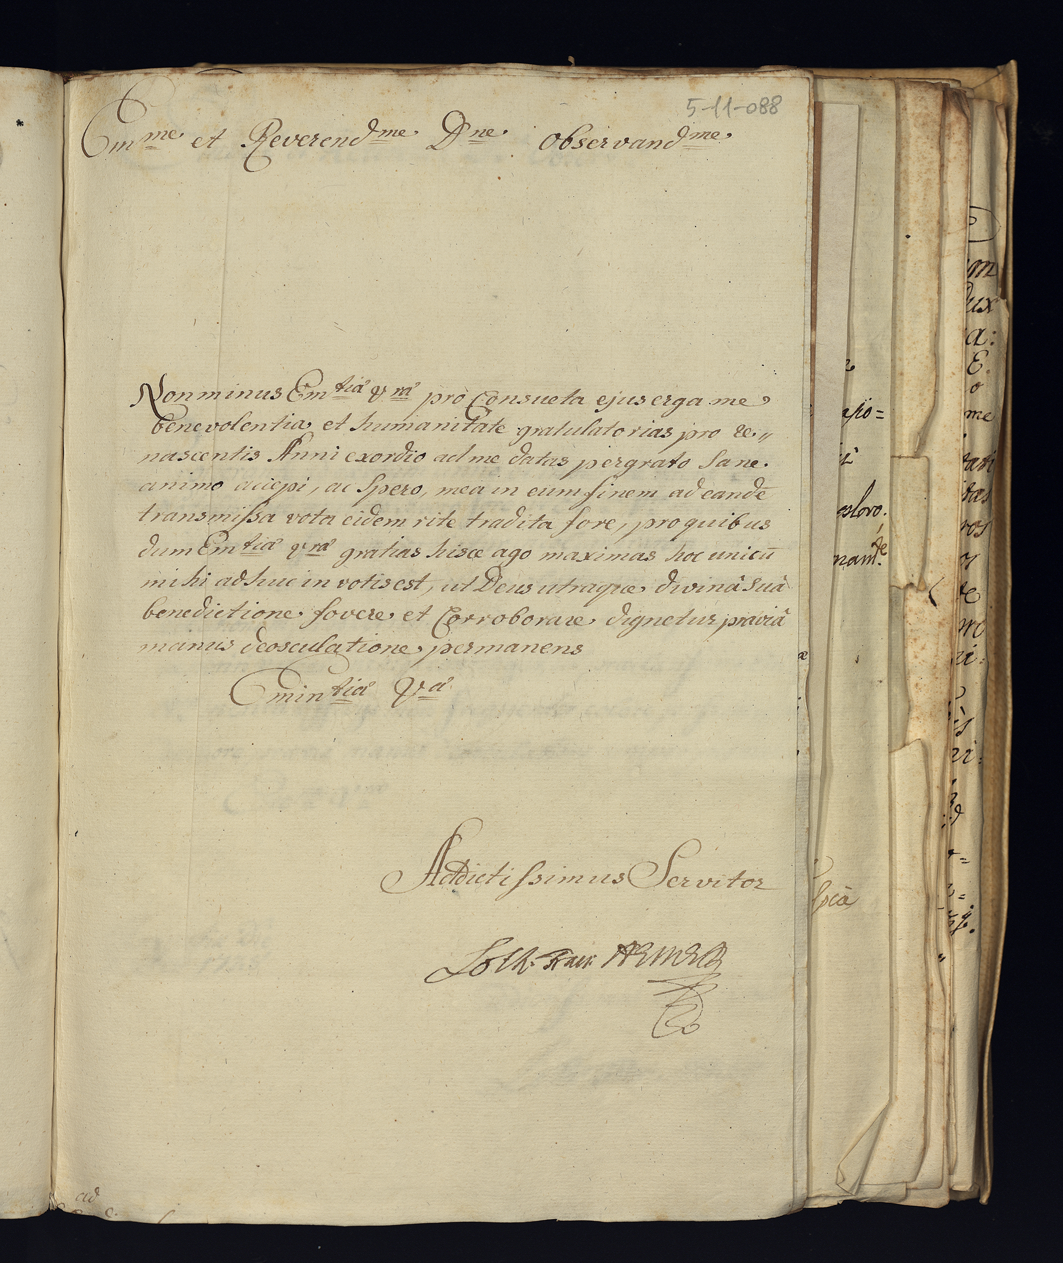 5-11-088
Em^me et Reverend^me D^ne observand^me
Non minus Em^tiae V^rae pro Consueta ejus erga me
benevolentia et humanitate gratulatorias pro re„
nascentis Anni exordio ad me datas pergrato sane
animo accepi, ac Spero, mea in eum finem ad eandē
transmissa vota eidem rite tradita fore, pro quibus
dum Em^tiae V^rae gratias hisce ago maximas hoc unicū
mihi adhuc in votis est, ut Deus utraque divinâ Suâ
benedictione fovere et Corroborare dignetur, praeviâ
manus deosculatione permanens
Emin^tiae V^ae
Addictissimus Servitor